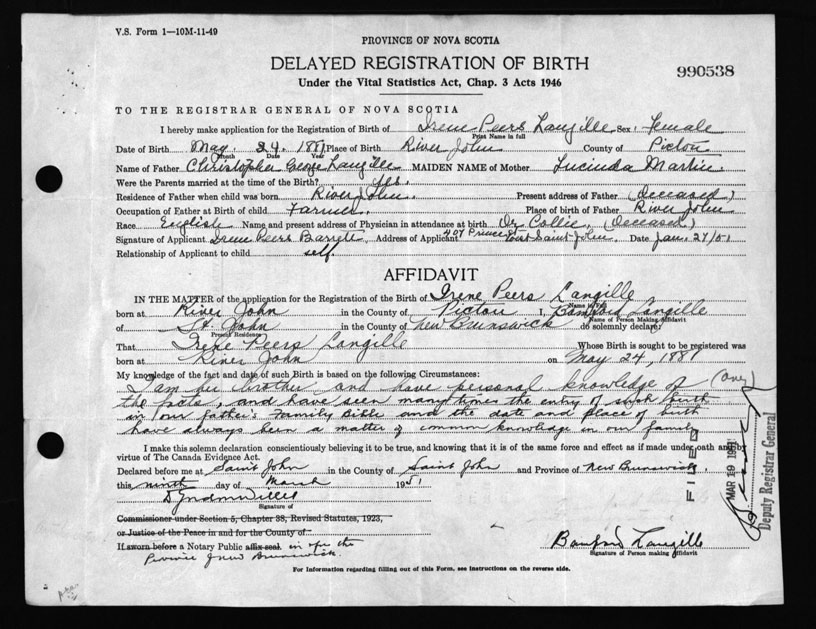 V.S. Form 1—10M-11-49
PROVINCE OF NOVA SCOTIA
DELAYED REGISTRATION OF BIRTH
Under the Vital Statistics Act, Chap. 3 Acts 1946
990538
TO THE REGISTRAR GENERAL OF NOVA SCOTIA
I hereby make application for the Registration of Birth of Irene Peers Langille Sex: Female
Print Name in full
Date of Birth May 24. 1881 Place of Birth River John County of Pictou
Month Date Year
Name of Father Christopher George Langille MAIDEN NAME of Mother Lucinda Martin
Were the Parents married at the time of the Birth? Yes.
Residence of Father when child was born River John. Present address of Father (Deceased)
Occupation of Father at Birth of child Farmer. Place of birth of Father River John
Race English Name and present address of Physician in attendance at birth Dr Collie, (Deceased)
Signature of Applicant Irene Peers Barrett Address of Applicant 207 Prince West Saint John. Date Jan. 27/51
Relationship of Applicant to child self.
AFFIDAVIT
IN THE MATTER of the application for the Registration of the Birth of Irene Peers Langille
Name in Full
born at River John in the County of Pictou I, Bamford Langille
Name of Person Making Affidavit
of St. John in the County of New Brunswick do solemnly declare:
Present Residence
That Irene Peers Langille Whose Birth is sought to be registered was
born at River John on May 24, 1881
My knowledge of the fact and date of such Birth is based on the following Circumstances:
I am her brother and have personal knowledge of (over)
the facts, and have seen many times the entry of such birth
in our father's Family Bible and the date and place of birth
have always been a matter of common knowledge in our family
I make this solemn declaration conscientiously believing it to be true, and knowing that it is of the same force and effect as if made under oath and
virtue of The Canada Evidence Act.
Declared before me at Saint John in the County of Saint John and Province of New Brunswick,
this ninth day of March 1951
Signature of
Commissioner under Section 5, Chapter 38, Revised Statutes, 1923,
or Justice of the Peace in and for the County of
If sworn before a Notary Public affix seal. in &amp; for the
Province of New Brunswick.
Bamford Langille
Signature of Person making Affidavit
For Information regarding filling out of this Form, see Instructions on the reverse side.
FILED
MAR 19 1951
Deputy Registrar General